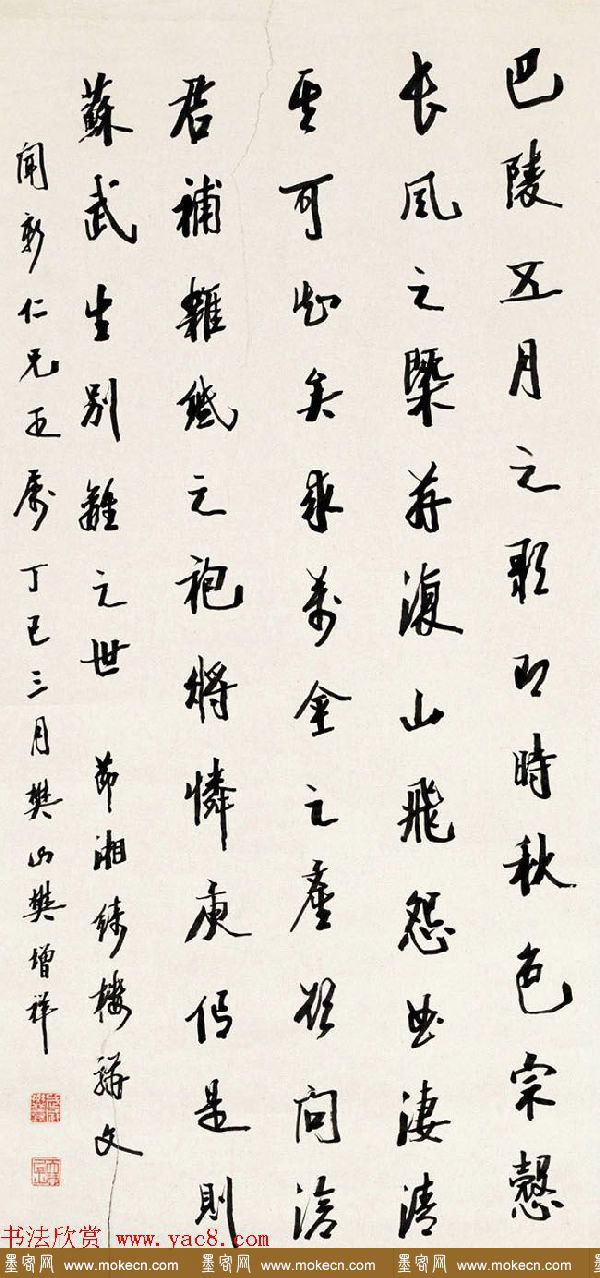 巴陵五月之歌即時秋色宗愨
長風之槩并復山飛怨曲淒清
可知矣求萬金之產欲問滄
君補雜之袍將憐庾信是則
蘇武生別離之世 節湘綺樓駢文
聞仁兄正屬丁巳三月樊山樊增祥
书法欣赏 www.yac8.com
墨客网 www.mokecn.com 墨客网 www.mokecn.com 墨客网 www.mokecn.com